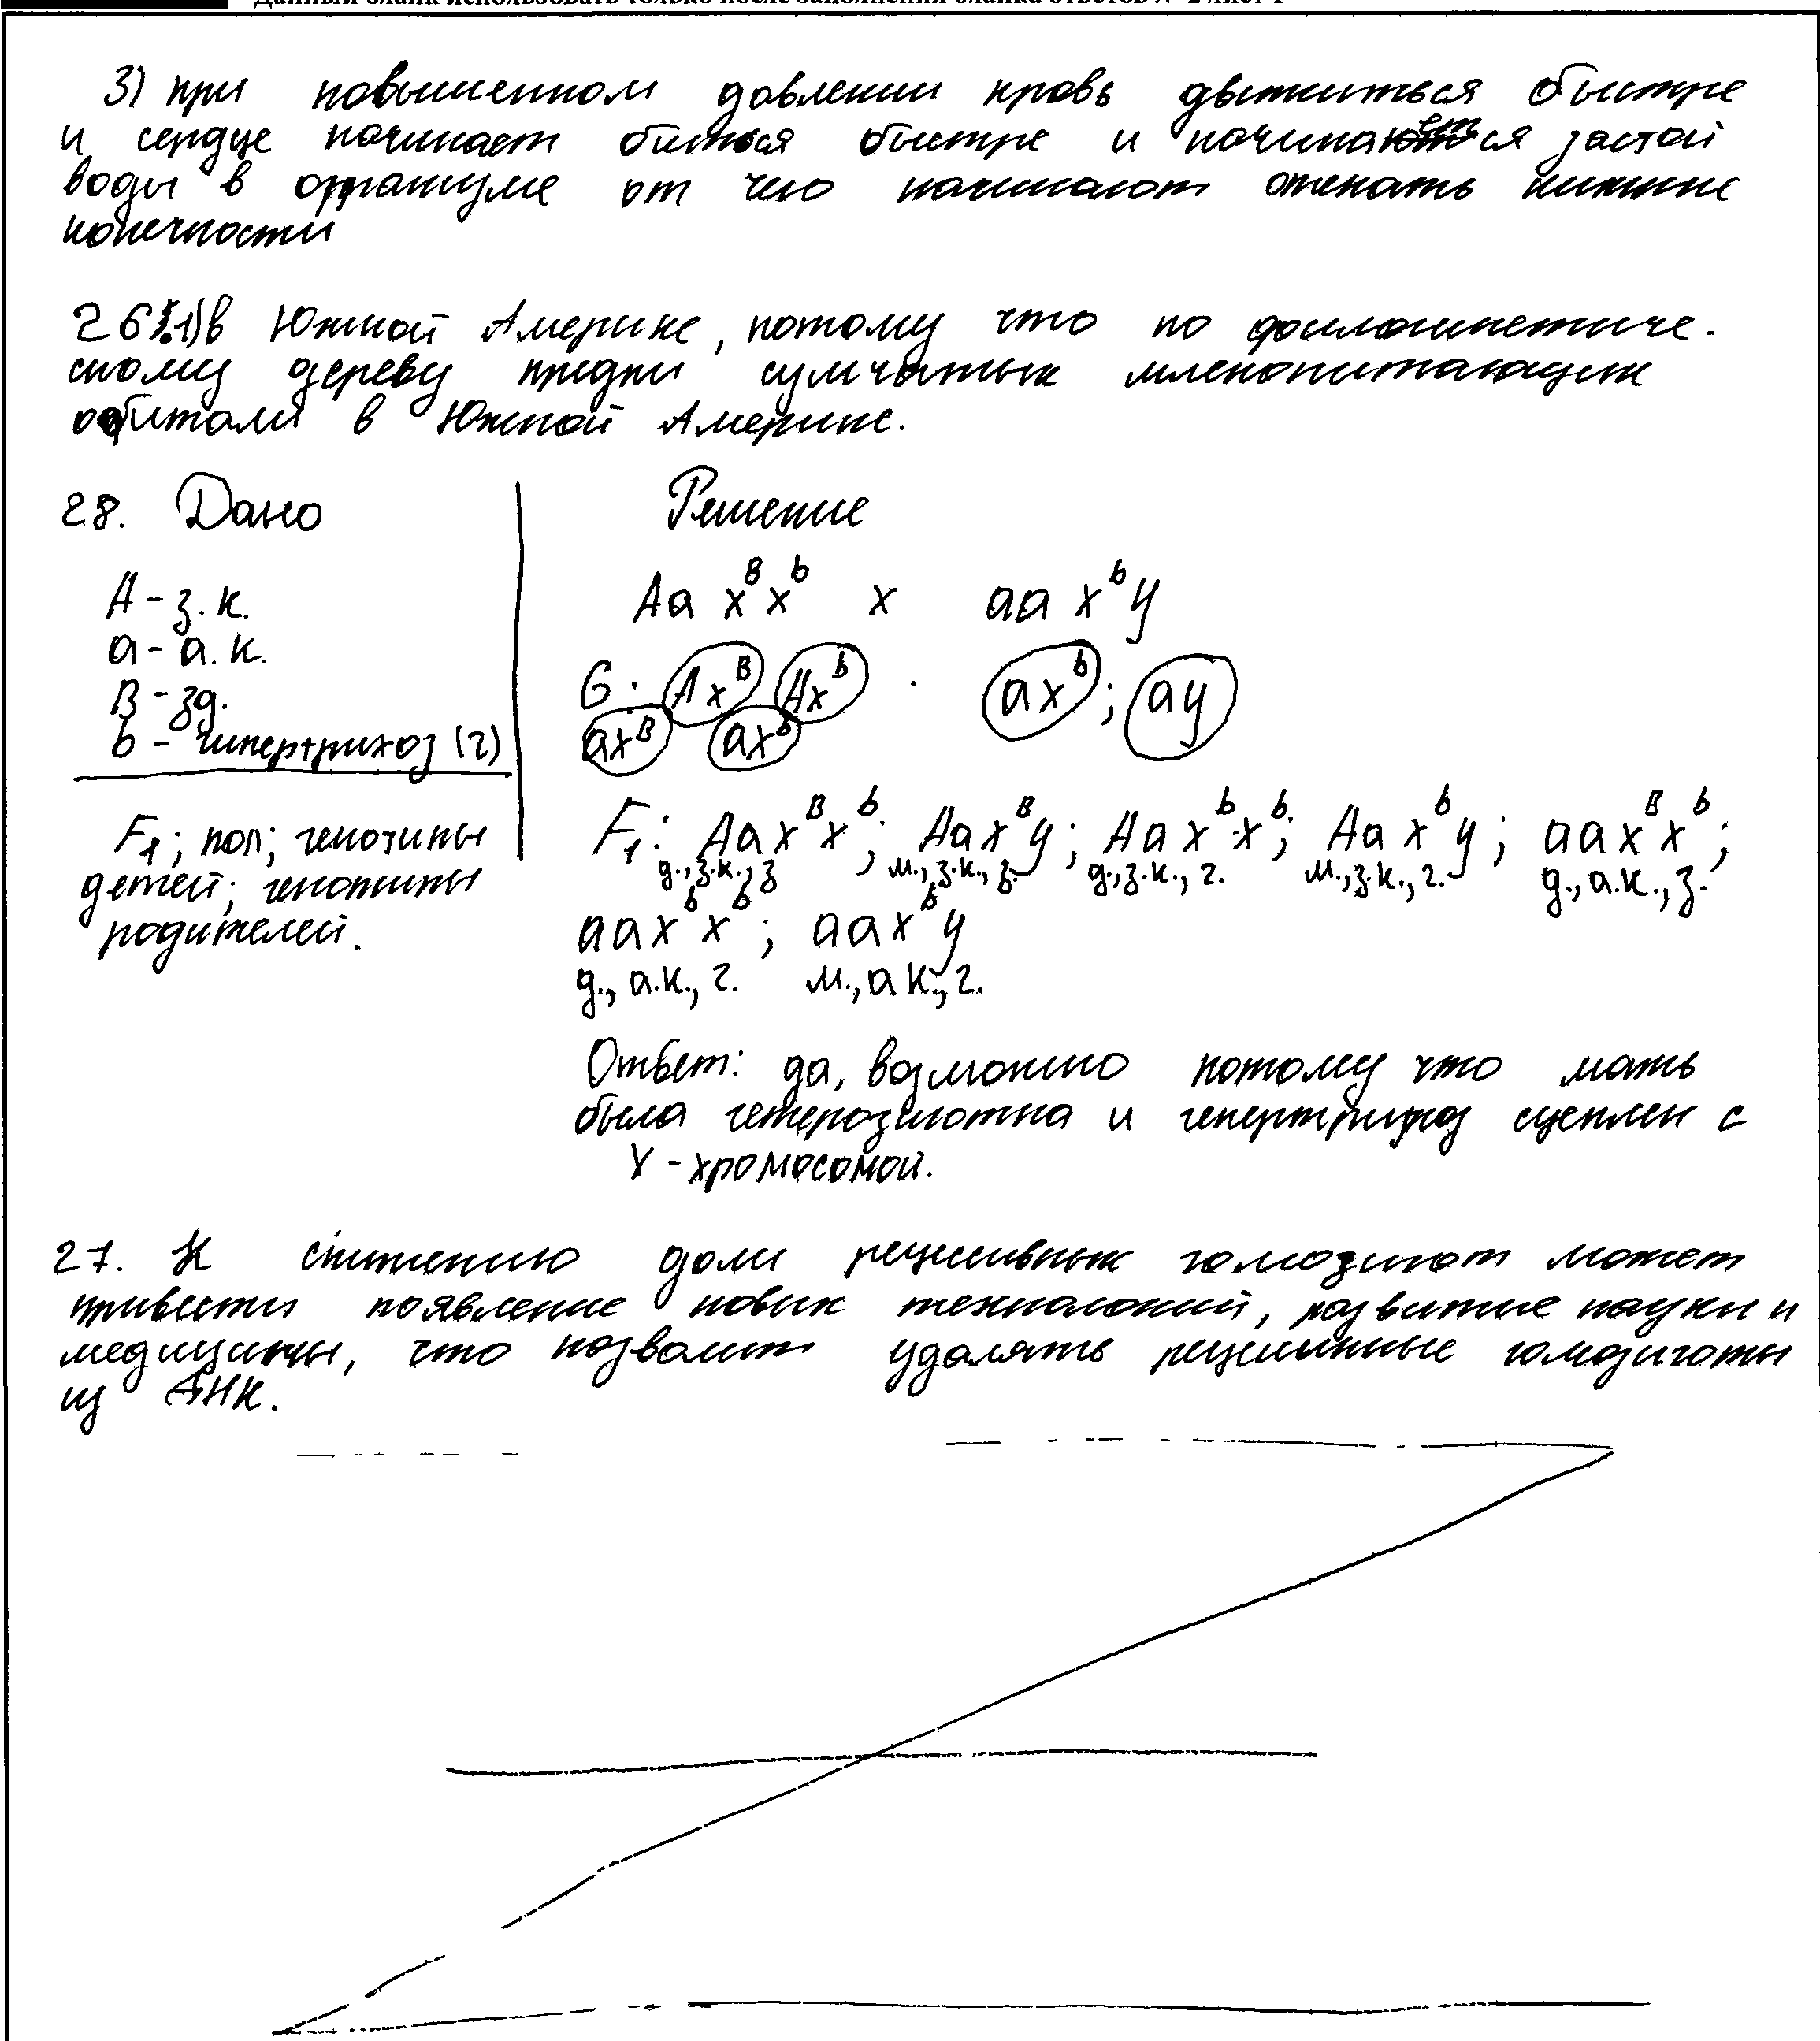 3) при повышенном давлении кровь движиться быстре
и сердце начинает биться быстре и начинается застой
воды в организме от чего начинают отекать нижние
конечности
26. 1) в Южной Америке, потому что по филогенетиче-
скому дереву предки сумчатых млекопитающих
обитали в Южной Америке.
28. Дано Решение
A - з.к.
a - а.к.
B - зд.
b - гипертрихоз (г)
F₁; пол; генотипы
детей; генотипы
родителей.
Aa xᴮxᵇ x aa xᵇy
G: Axᴮ Axᵇ . axᵇ; ay
axᴮ axᵇ
F₁: Aa xᴮxᵇ; Aaxᴮy; Aa xᵇxᵇ; Aa xᵇy; aa xᴮxᵇ;
д.,з.к.,з м.,з.к.,з. д.,з.к.,г. м.,з.к.,г. д.,а.к.,з.
aaxᵇxᵇ; aaxᵇy
д.,а.к.,г. м.,а.к.,г.
Ответ: да, возможно потому что мать
была гетерозиготна и гепертрихоз сцеплен с
Y - хромосомой.
27. К снижению доли рецесивных гомозигот может
привести появление новых технологий, развитие науки и
медицины, что позволит удалять рецесивные гомозиготы
из ДНК.